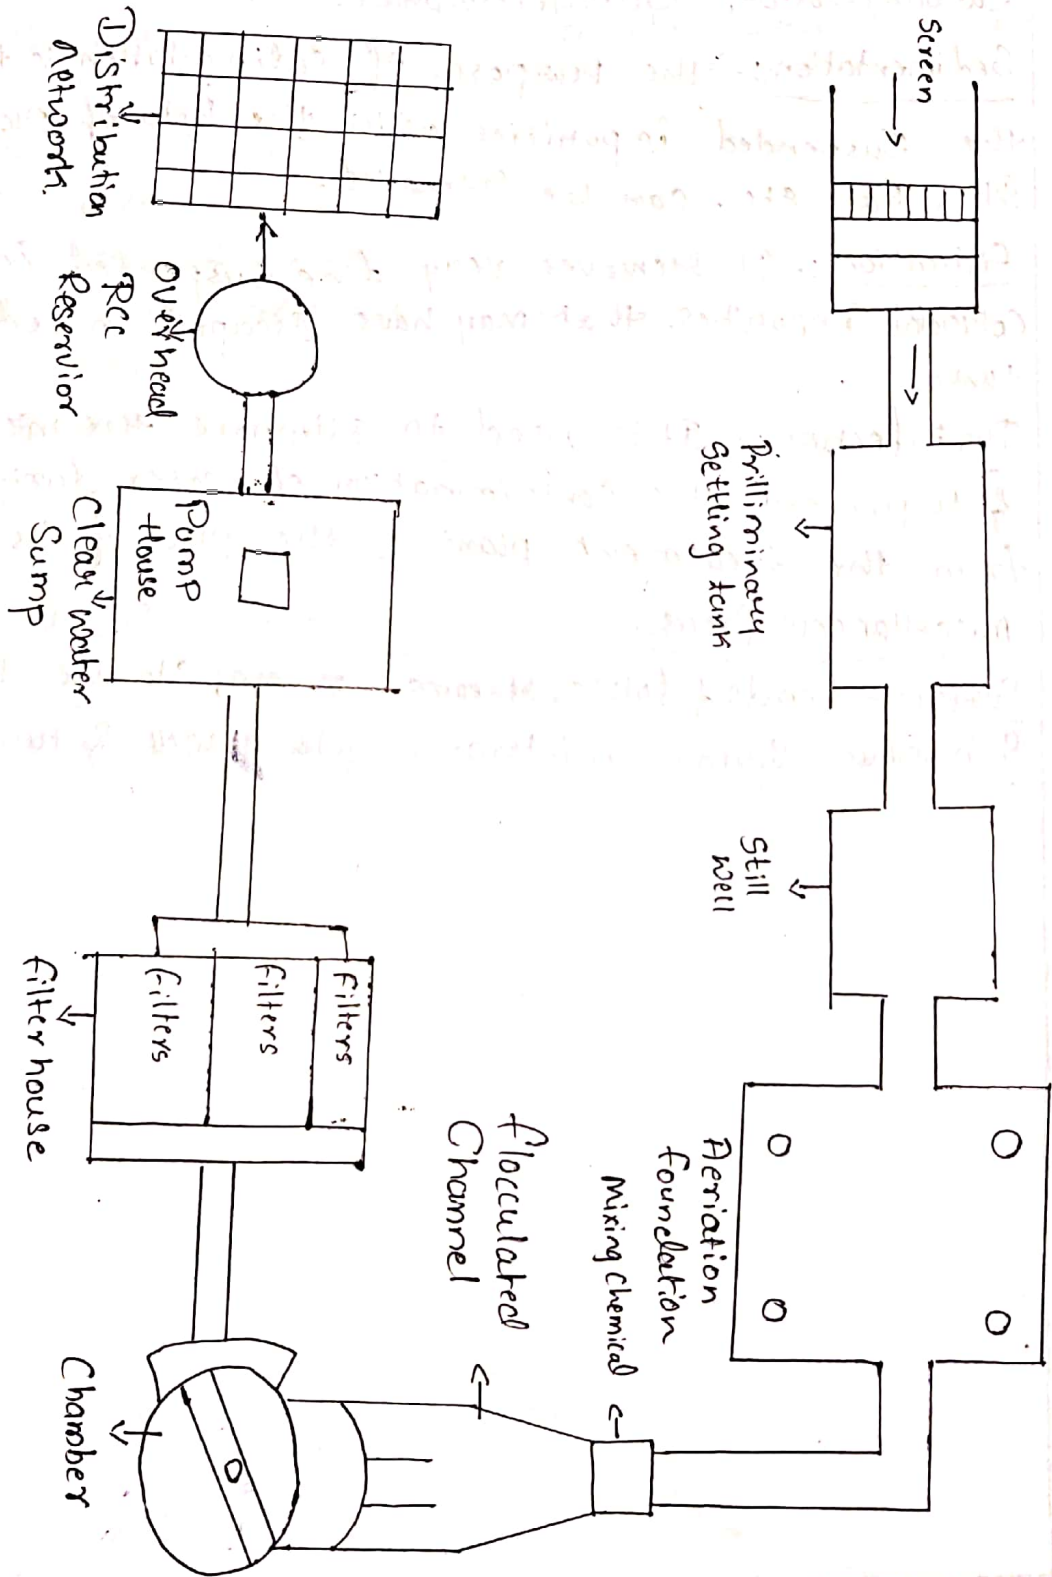 Screen
Prilliminary
Settling tank
Still
Well
Aeriation
foundation
Mixing Chemical
flocculated
Channel
Chamber
filters
filters
filters
filter house
Pump
House
Clear water
Sump
Overhead
RCC
Reservior
Distribution
network.